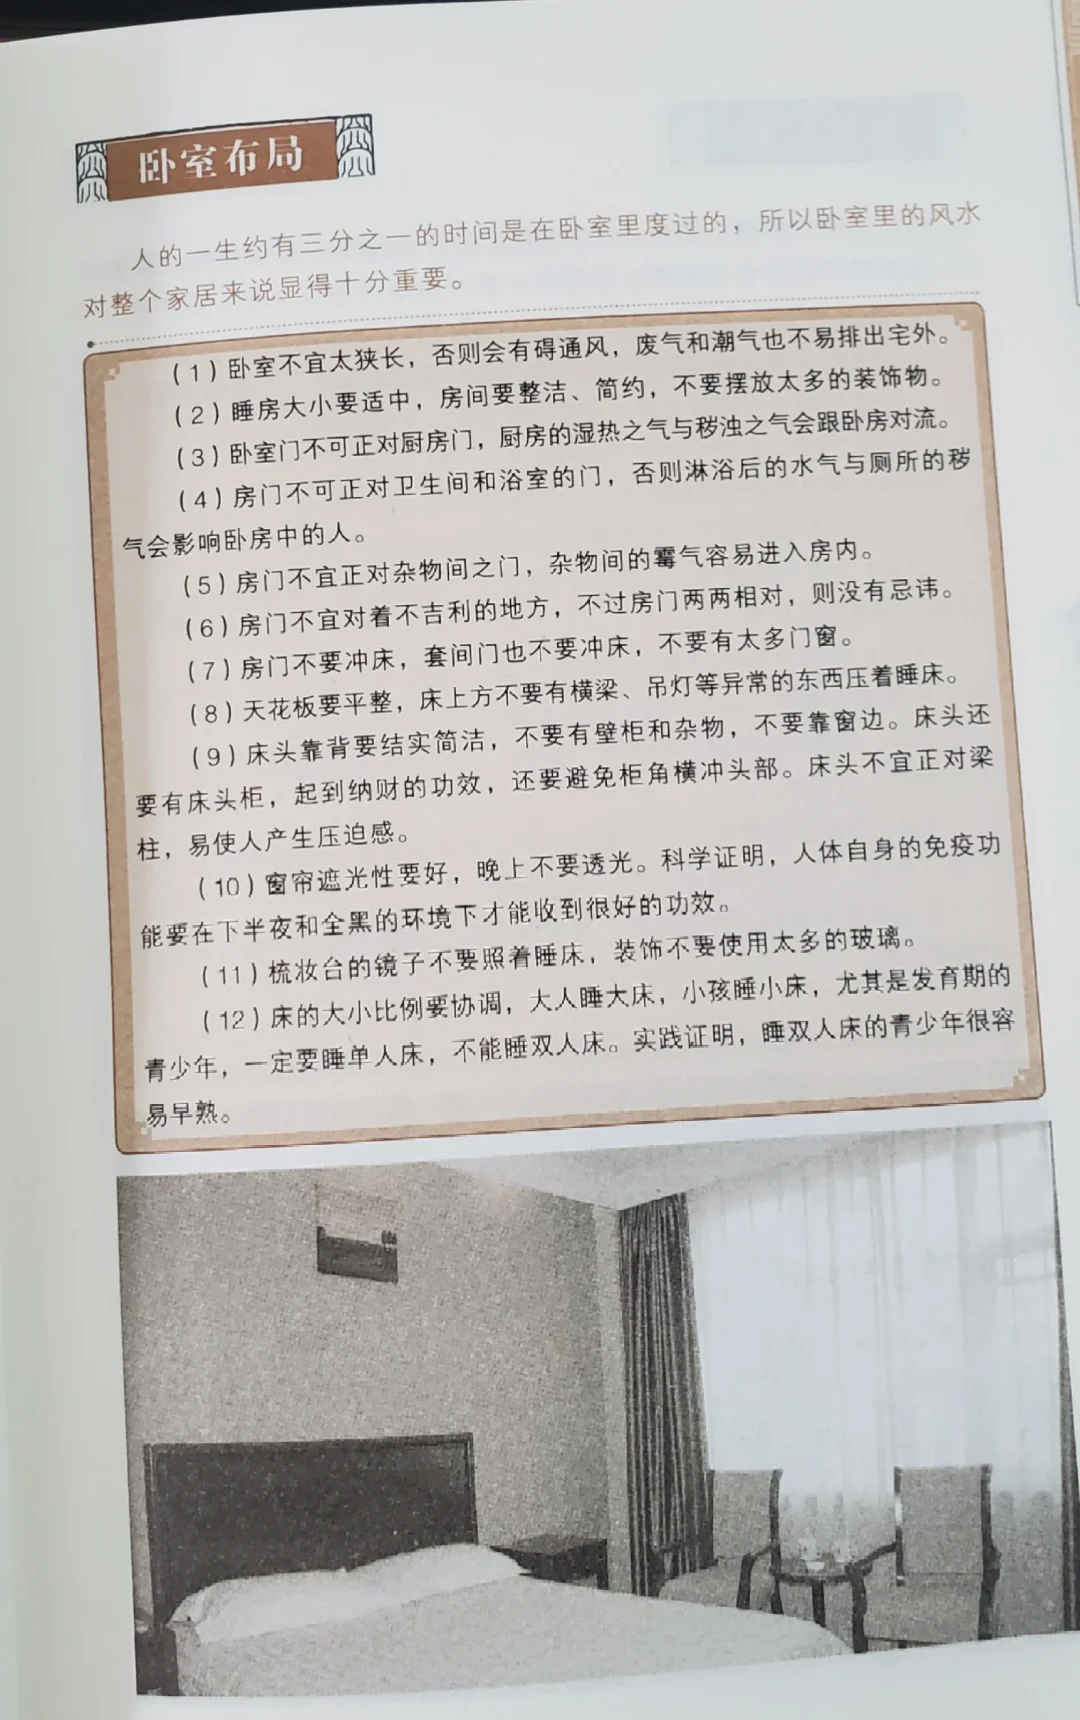 卧室布局
人的一生约有三分之一的时间是在卧室里度过的，所以卧室里的风水
对整个家居来说显得十分重要。
（1）卧室不宜太狭长，否则会有碍通风，废气和潮气也不易排出宅外。
（2）睡房大小要适中，房间要整洁、简约，不要摆放太多的装饰物。
（3）卧室门不可正对厨房门，厨房的湿热之气与秽浊之气会跟卧房对流。
（4）房门不可正对卫生间和浴室的门，否则淋浴后的水气与厕所的秽
气会影响卧房中的人。
（5）房门不宜正对杂物间之门，杂物间的霉气容易进入房内。
（6）房门不宜对着不吉利的地方，不过房门两两相对，则没有忌讳。
（7）房门不要冲床，套间门也不要冲床，不要有太多门窗。
（8）天花板要平整，床上方不要有横梁、吊灯等异常的东西压着睡床。
（9）床头靠背要结实简洁，不要有壁柜和杂物，不要靠窗边。床头还
要有床头柜，起到纳财的功效，还要避免柜角横冲头部。床头不宜正对梁
柱，易使人产生压迫感。
（10）窗帘遮光性要好，晚上不要透光。科学证明，人体自身的免疫功
能要在下半夜和全黑的环境下才能收到很好的功效。
（11）梳妆台的镜子不要照着睡床，装饰不要使用太多的玻璃。
（12）床的大小比例要协调，大人睡大床，小孩睡小床，尤其是发育期的
青少年，一定要睡单人床，不能睡双人床。实践证明，睡双人床的青少年很容
易早熟。